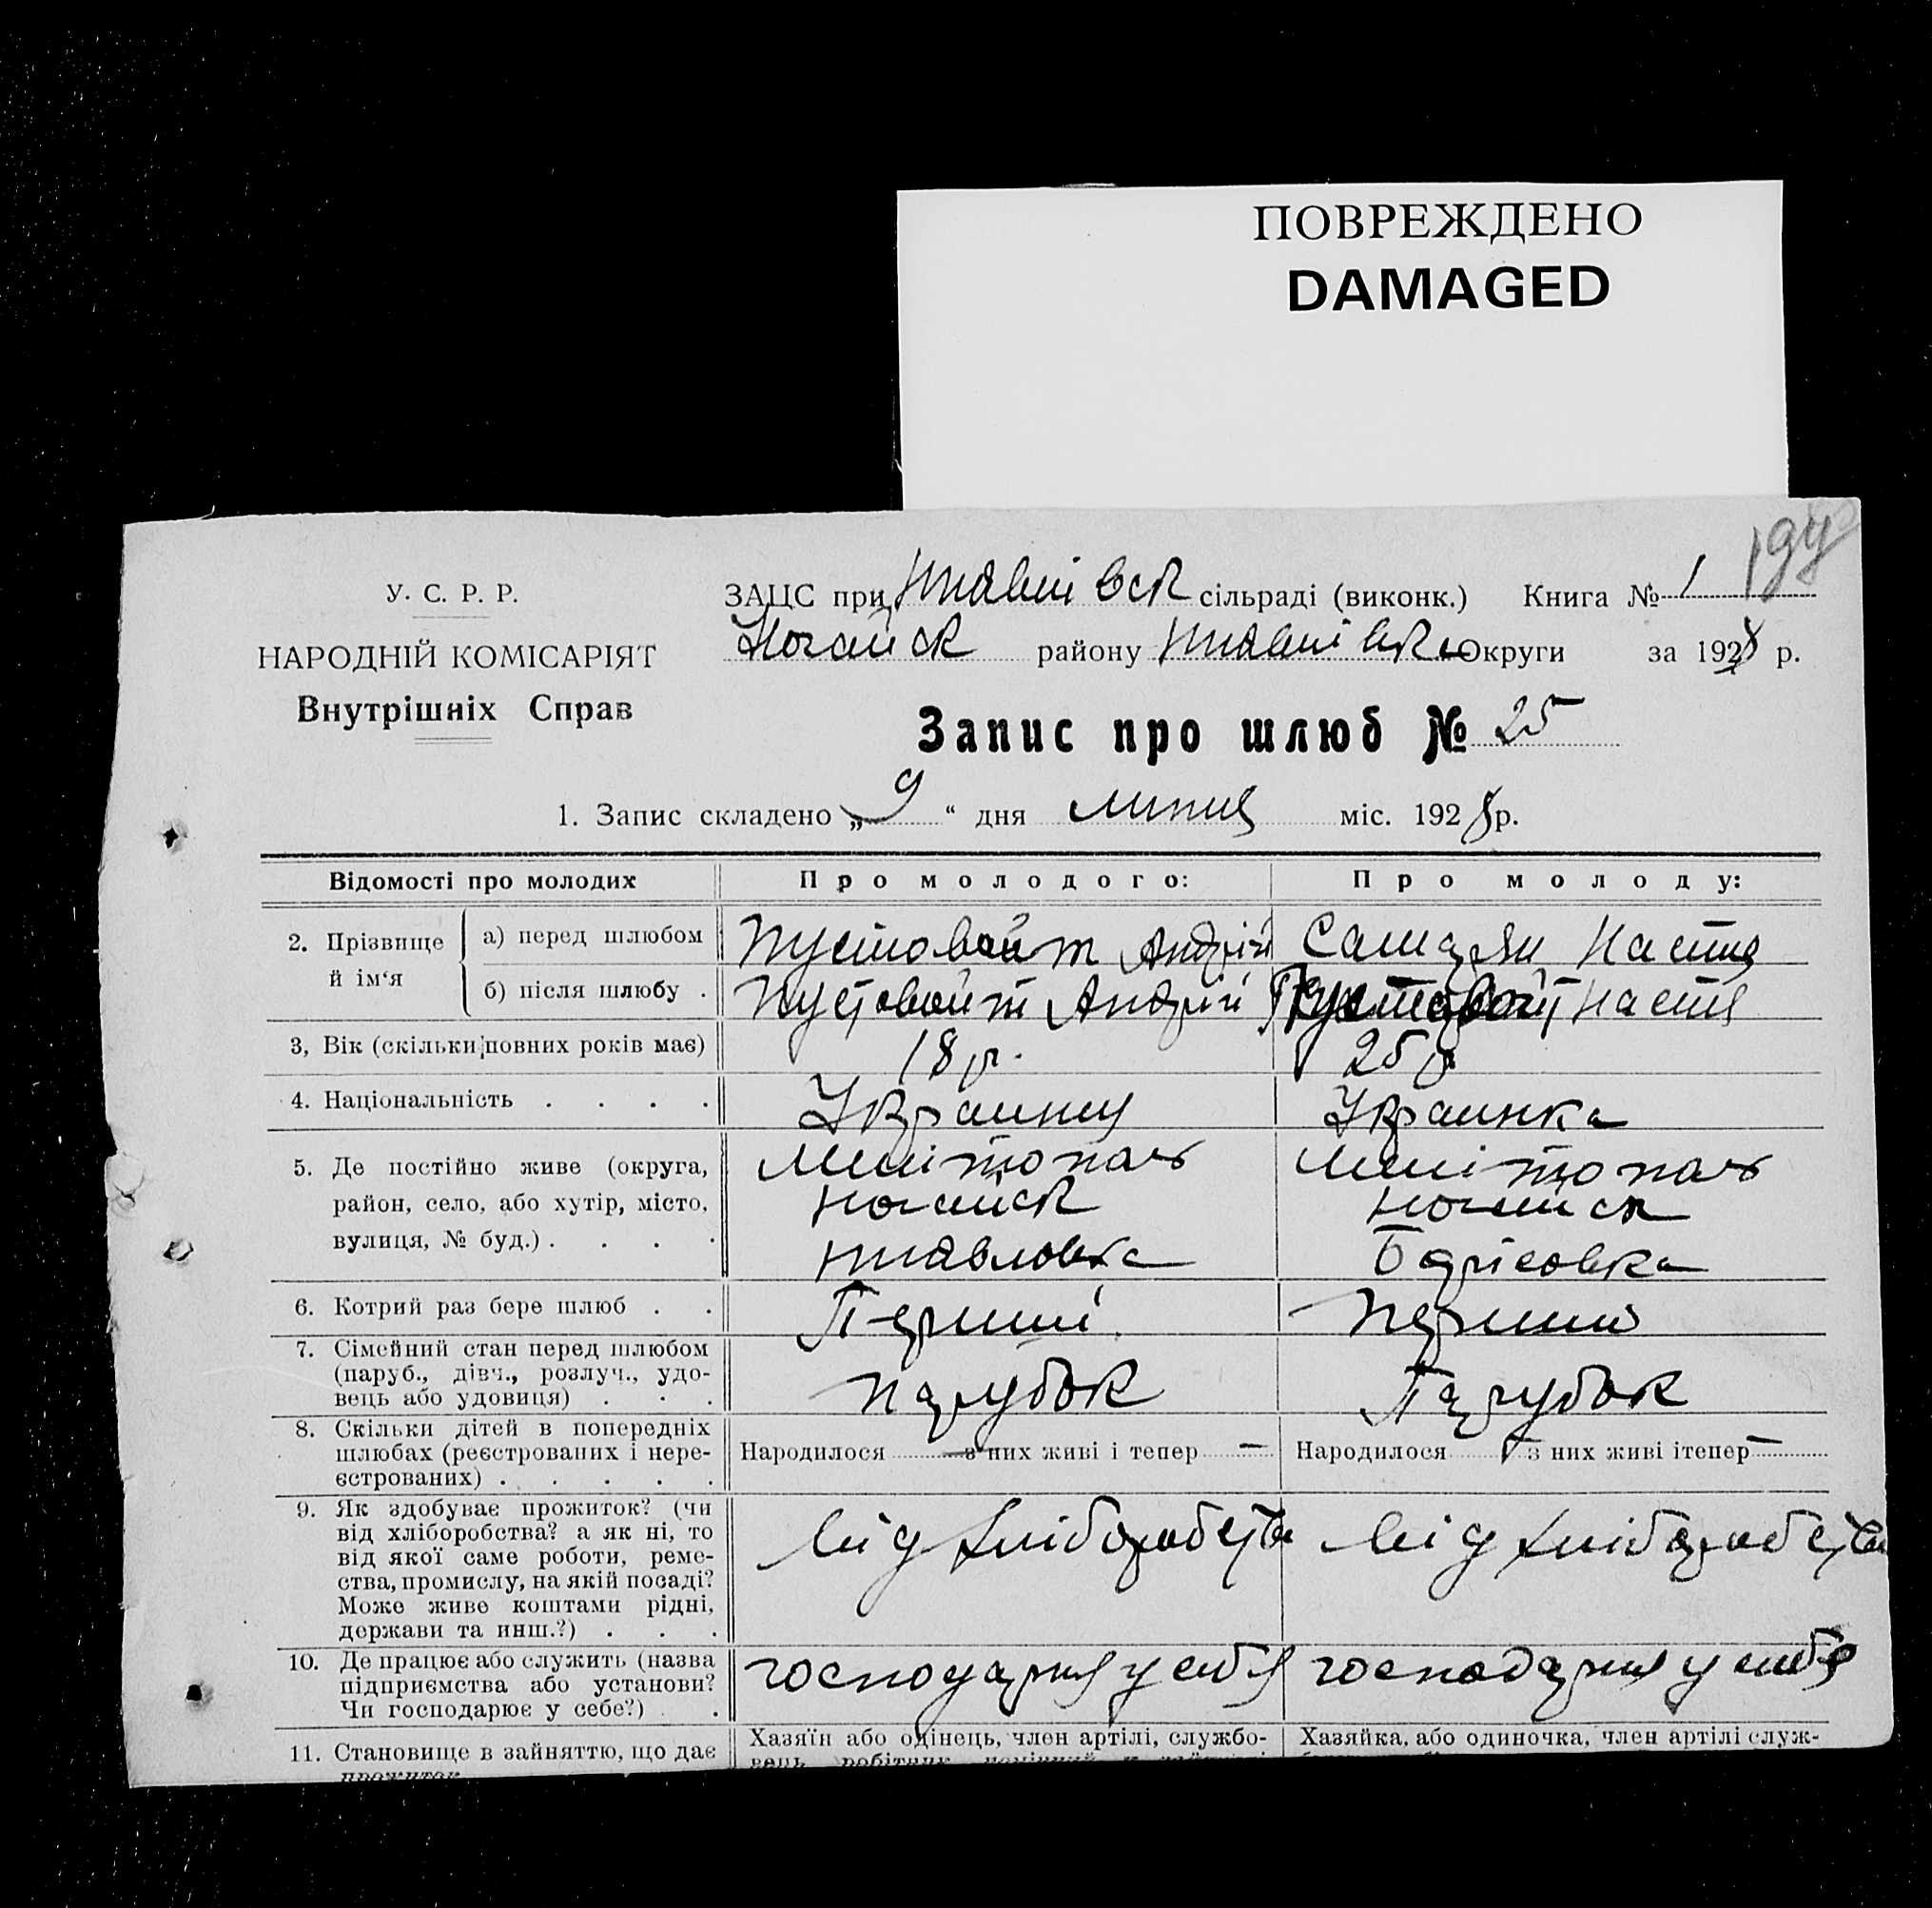 ПОВРЕЖДЕНО
DAMAGED
У. С. Р. Р.
НАРОДНІЙ КОМІСАРІЯТ
Внутрішніх Справ
ЗАЦС при сільраді (виконк.) Книга № 1
Ногайск району Округи за 1928 р.
Запис про шлюб № 25
1. Запис складено „ 9 “ дня липця міс. 1928 р.
Відомості про молодих Про молодого: Про молоду:
2. Прізвище й ім‘я
а) перед шлюбом Пустовойт Андрій Настя
б) після шлюбу . Пустовойт Андрій Пустовойт Настя
3, Вік (скільки повних років має) 18 р. 25 р
4. Національність . . . . Украинец Украинка
5. Де постійно живе (округа, Мелітополь Мелітополь
район, село, або хутір, місто, Ногайск Ногайск
вулиця, № буд.) . . . . Павловка Борісовка
6. Котрий раз бере шлюб . . Перший Перший
7. Сімейний стан перед шлюбом
(паруб., дівч., розлуч., удо-
вець або удовиця) . . . Парубок Парубок
8. Скільки дітей в попередніх
шлюбах (реєстрованих і нере-
єстрованих) . . . . . Народилося — з них живі і тепер — Народилося — з них живі ітепер —
9. Як здобуває прожиток? (чи
від хліборобства? а як ні, то
від якої саме роботи, реме-
ства, промислу, на якій посаді?
Може живе коштами рідні,
держави та инш.?) . . . від хліборобства від хліборобства
10. Де працює або служить (назва
підприємства або установи?
Чи господарює у себе?) . . господарня у себя господарня у себя
11. Становище в зайняттю, що дає
прожиток
Хазяїн або одінець, член артілі, службо-
вець, робітник
Хазяйка, або одиночка, член артілі служ-